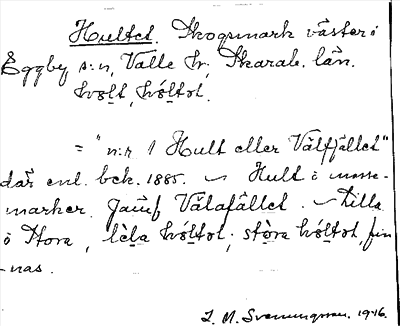 Hultet. Skogsmark väster i
Eggby s:n, Valle hr, Skarab. län.
hvolt, hóltot.
= "n:r 1 Hult eller Välffället"
där enl. bek. 1885. – Hult i mose-
marker. Jämf Välafället. – Lilla
o Stora, lèla hóltot, stòra hóltot, fin-
-nas.
L. M. Svenungsson. 1916.